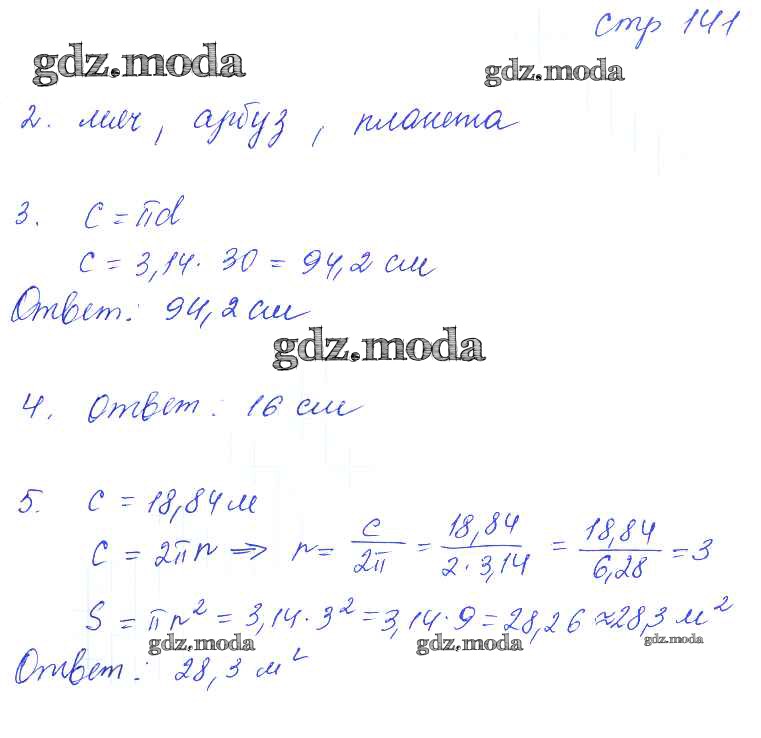 стр 141
gdz.moda
gdz.moda
2. мяч, арбуз, планета
3. C = πd
C = 3,14 · 30 = 94,2 см
Ответ: 94,2 см
gdz.moda
4. Ответ: 16 см
5. C = 18,84 м
C = 2πr ⇒ r = C/2π = 18,84/2·3,14 = 18,84/6,28 = 3
S = πr² = 3,14 · 3² = 3,14 · 9 = 28,26 ≈ 28,3 м²
gdz.moda gdz.moda gdz.moda
Ответ: 28,3 м²